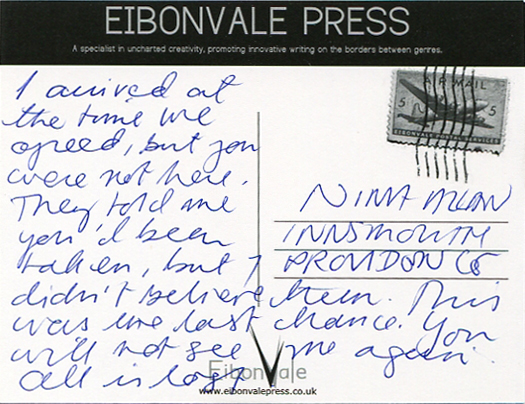 EIBONVALE PRESS
A specialist in uncharted creativity, promoting innovative writing on the borders between genres.
I arrived at
the time we
agreed, but you
were not here.
They told me
you'd been
taken, but I
didn't believe them. This
was the last chance. You
will not see me again.
All is lost
AIR MAIL
5 5
EIBONVALE
NINA ALLAN
INNSMOUTH
PROVIDENCE
Eibonvale
www.eibonvalepress.co.uk